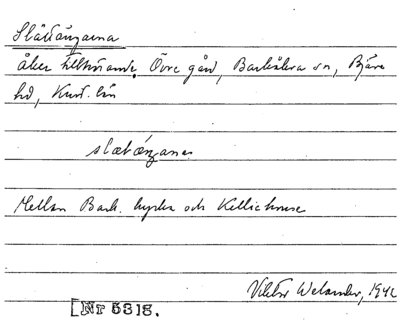 Slättängarna
åker tillhörande Övre gård, Barkåkra sn, Bjäre
hd, Krist. län
slætæŋana
Mellan Bark. kyrka och
Viktor Welander, 1942
[Nr 5818.